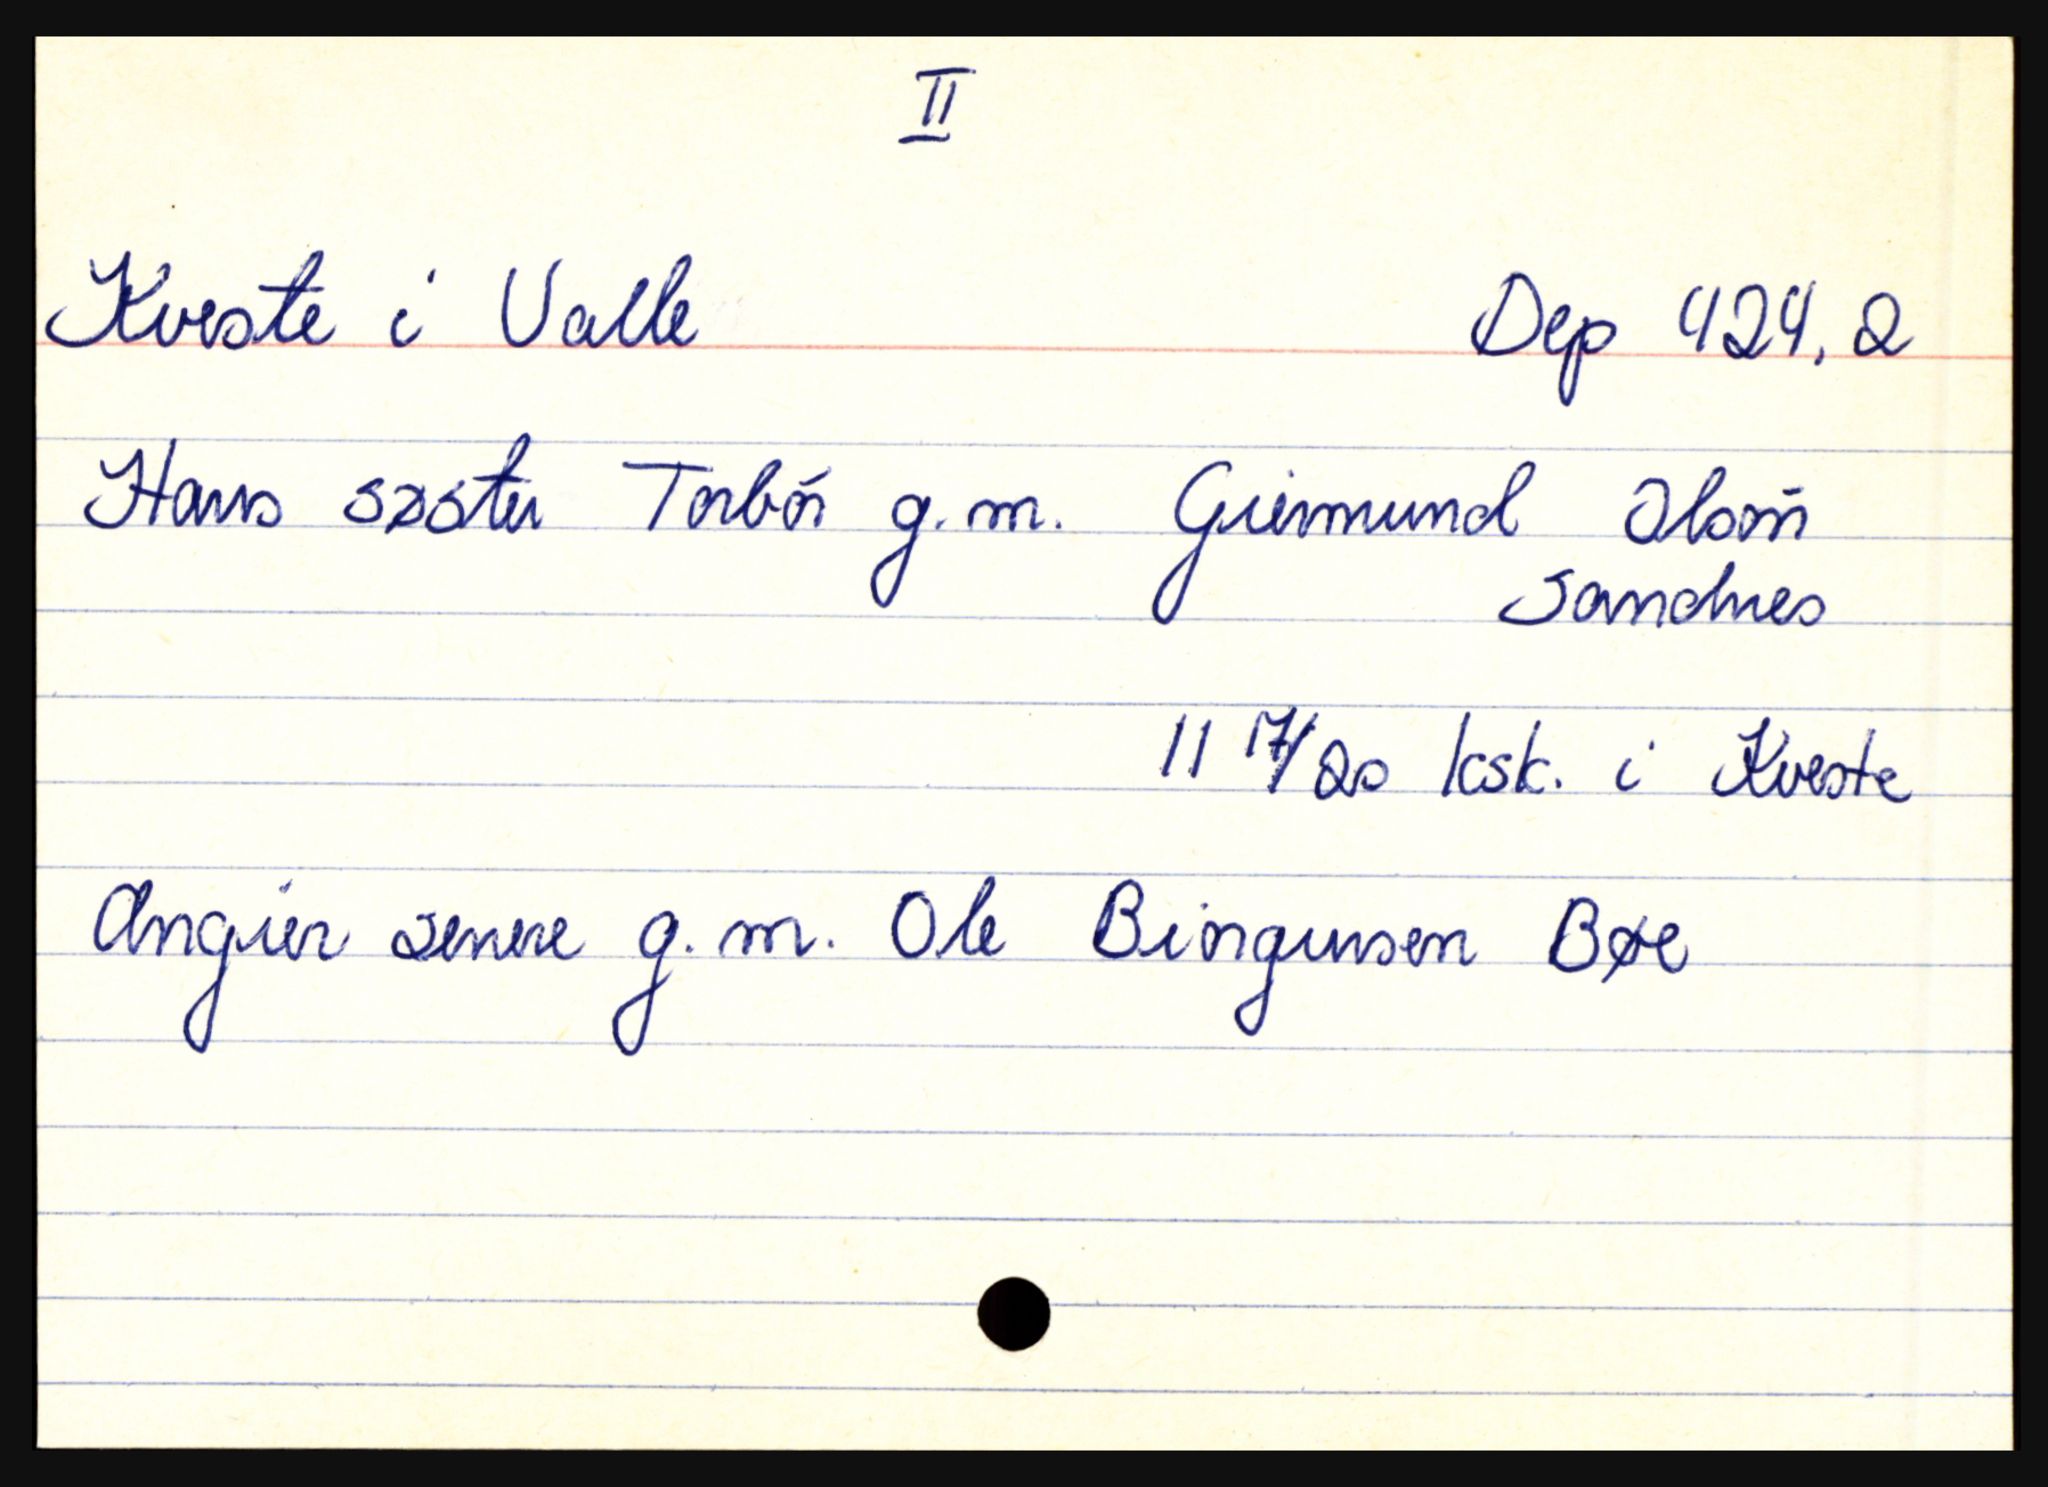 II
Kveste i Valle Dep 424, 2
Hans søster Torbór g.m. Giermund Olsøn
Sandnes
11 17/20 ksk. i Kveste
Angier senere g.m. Ole Biorgunsen Bøe